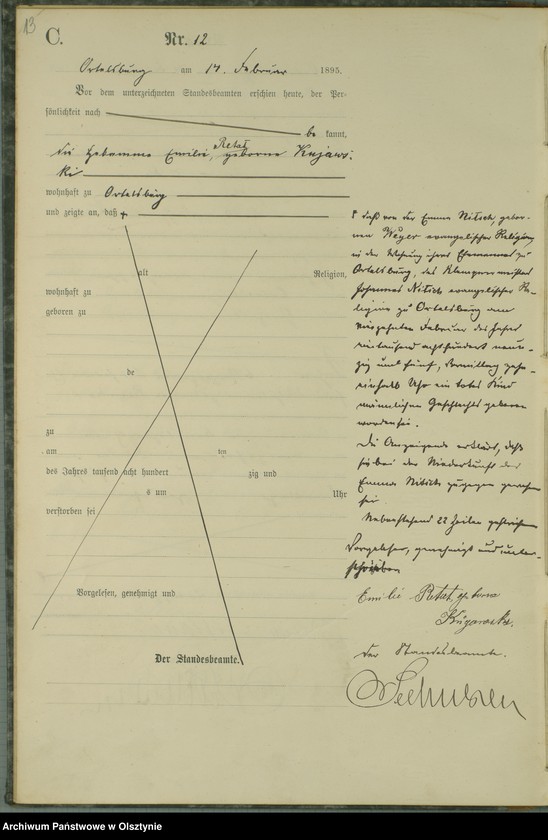 13
C.
Nr. 12
Ortelsburg am 14. Februar 1895.
Vor dem unterzeichneten Standesbeamten erschien heute, der Per-
sönlichkeit nach
be kannt,
die Hebamme Emilie Retat, geborne Kujaws-
ki
wohnhaft zu Ortelsburg
und zeigte an, daß
alt
Religion,
wohnhaft zu
geboren zu
de
zu
am
des Jahres tausend acht hundert zig und
s um Uhr
verstorben sei
Vorgelesen, genehmigt und
Der Standesbeamte.
daß von der Emma Nitsch, gebor-
nen Weyer evangelischer Religion,
in der Wohnung ihres Ehemannes zu
Ortelsburg, des Klempnermeister
Johannes Nitsch evangelischer Re-
ligion zu Ortelsburg am
vierzehnten Februar des Jahres
eintausend achthundert neun-
zig und fünf, Vormittag zehn-
einhalb Uhr ein totes Kind
männlichen Geschlechts geboren
worden sei.
Die Anzeigende erklärt, daß
sie bei der Niederkunft der
Emma Nitsch zugegen gewesen
sei.
Nebenstehend 22 Zeilen gestrichen
Vorgelesen, genehmigt und unter-
schrieben
Emilie Retat, geborne
Kujawski.
Der Standesbeamte.
Archiwum Państwowe w Olsztynie